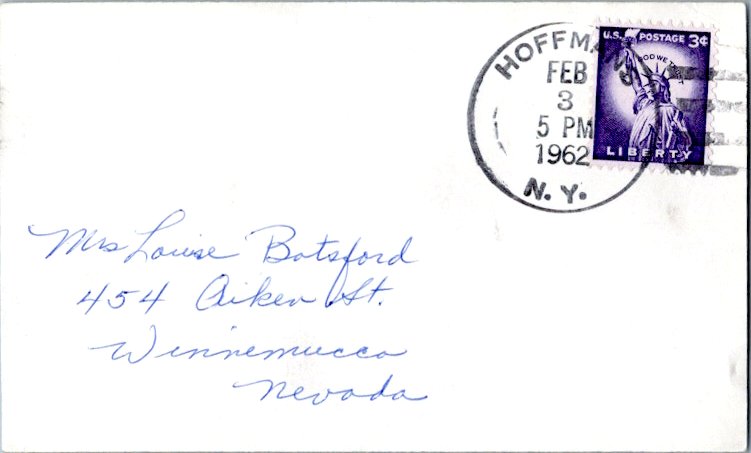 HOFFMANS
FEB
3
5 PM
1962
N.Y.
U.S. POSTAGE 3¢
IN GOD WE TRUST
LIBERTY
Mrs Louise Botsford
454 Aiken St.
Winnemucca
Nevada